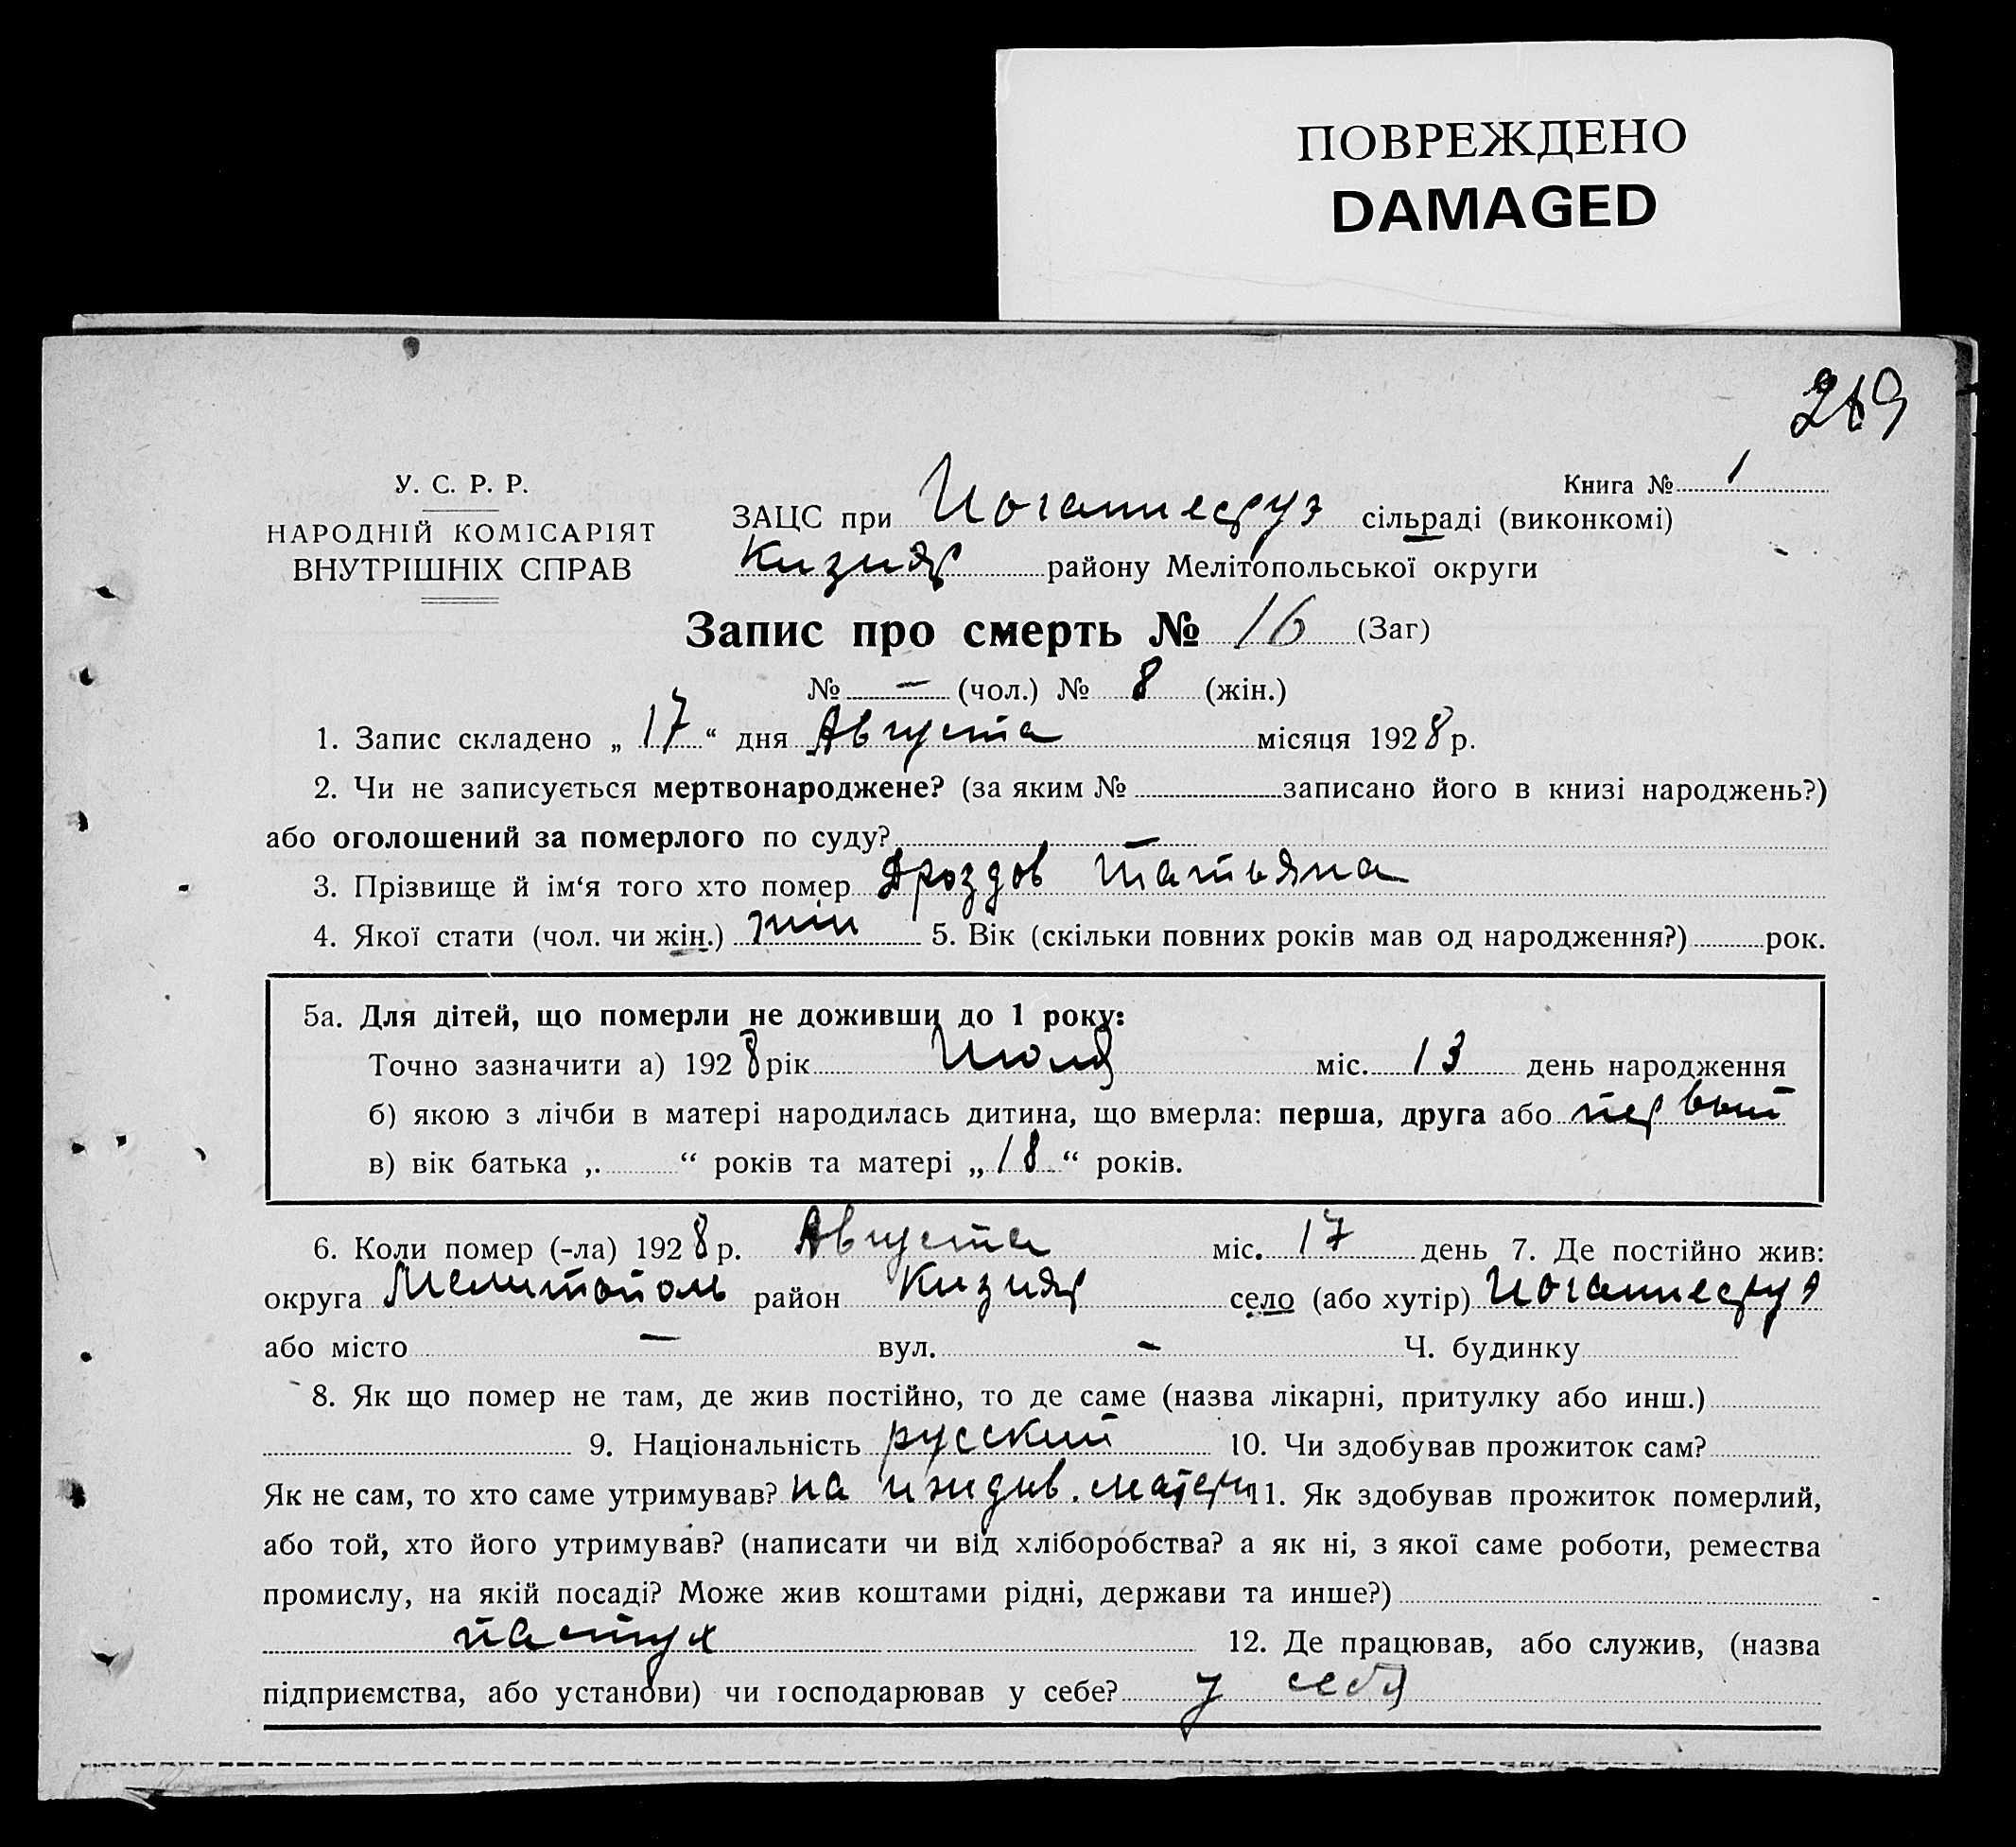 ПОВРЕЖДЕНО
DAMAGED
У. С. Р. Р.
НАРОДНІЙ КОМІСАРІЯТ
ВНУТРІШНІХ СПРАВ
Книга № 1
ЗАЦС при Иоганнесруэ сільраді (виконкомі)
Кизияр району Мелітопольської округи
Запис про смерть № 16 (Заг)
№ — (чол.) № 8 (жін.)
1. Запис складено „ 17 “ дня Августа місяця 1928 р.
2. Чи не записується мертвонароджене? (за яким № записано його в книзі народжень?)
або оголошений за померлого по суду? —
3. Прізвище й ім‘я того хто помер Дроздов Татьяна
4. Якої стати (чол. чи жін.) жін 5. Вік (скільки повних років мав од народження?) рок.
5а. Для дітей, що померли не доживши до 1 року:
Точно зазначити а) 1928 рік Июля міс. 13 день народження
б) якою з лічби в матері народилась дитина, що вмерла: перша, друга або первый
в) вік батька „ “ років та матері „ 18 “ років.
6. Коли помер (-ла) 1928 р. Августа міс. 17 день 7. Де постійно жив:
округа Мелитополь район Кизияр село (або хутір) Иоганнесруэ
або місто — вул. - Ч. будинку
8. Як що помер не там, де жив постійно, то де саме (назва лікарні, притулку або инш.)
9. Національність русский 10. Чи здобував прожиток сам?
Як не сам, то хто саме утримував? на иждив. матери 11. Як здобував прожиток померлий,
або той, хто його утримував? (написати чи від хліборобства? а як ні, з якої саме роботи, ремества
промислу, на якій посаді? Може жив коштами рідні, держави та инше?)
пастух 12. Де працював, або служив, (назва
підприємства, або установи) чи господарював у себе? у себя